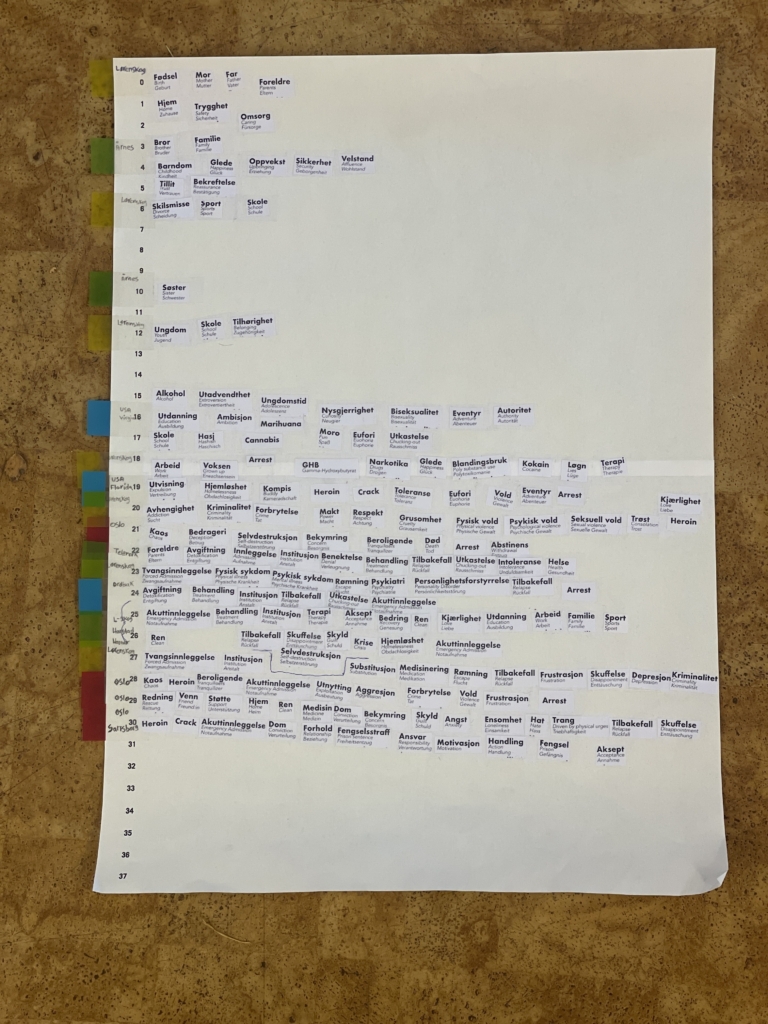 Lørenskog
0 Fødsel Mor Far Foreldre
Birth Mother Father Parents
Geburt Mutter Vater Eltern
1 Hjem Trygghet
Home Safety
Zuhause Sicherheit
2 Omsorg
Caring
Fürsorge
3 Bror Familie
Brother Family
Bruder Familie
4 Barndom Glede Oppvekst Sikkerhet Velstand
Childhood Happiness Upbringing Security Affluence
Kindheit Glück Erziehung Geborgenheit Wohlstand
5 Tillit Bekreftelse
Trust Reassurance
Vertrauen Bestätigung
6 Skilsmisse Sport Skole
Divorce Sports School
Scheidung Sport Schule
7
8
9
10 Søster
Sister
Schwester
11
12 Ungdom Skole Tilhørighet
Youth School Belonging
Jugend Schule Zugehörigkeit
13
14
15 Alkohol Utadvendthet Ungdomstid
Alcohol Extroversion Adolescence
Alkohol Extrovertiertheit Adoleszenz
USA
16 Utdanning Ambisjon Marihuana Nysgjerrighet Biseksualitet Eventyr Autoritet
Education Ambition Curiosity Bisexuality Adventure Authority
Ausbildung Ambition Bisexualität Abenteuer Autorität
17 Skole Hasj Cannabis Moro Eufori Utkastelse
School Hashish Fun Euphoria Chucking-out
Schule Haschisch Spaß Euphorie Rausschmiss
18 Arbeid Voksen Arrest GHB Narkotika Glede Blandingsbruk Kokain Løgn Terapi
Work Grown up Gamma-Hydroxybutyrat Drugs Happiness Poly substance use Cocaine Lies Therapy
Arbeit Erwachsensein Drogen Glück Kokain Lüge Therapie
USA
Florida
19 Utvisning Hjemløshet Kompis Heroin Crack Toleranse Eufori Vold Eventyr Arrest Kjærlighet
Expulsion Homelessness Buddy Tolerance Euphoria Violence Adventure Love
Vertreibung Obdachlosigkeit Kameradschaft Toleranz Euphorie Gewalt Abenteuer Liebe
20 Avhengighet Kriminalitet Forbrytelse Makt Respekt Grusomhet Fysisk vold Psykisk vold Seksuell vold Trøst Heroin
Addiction Criminality Crime Power Respect Cruelty Physical violence Psychological violence Sexual violence Consolation
Sucht Kriminalität Tat Macht Achtung Grausamkeit Physische Gewalt Psychische Gewalt Sexuelle Gewalt Trost
Oslo
21 Kaos Bedrageri Selvdestruksjon Bekymring Beroligende Død Arrest Abstinens
Chaos Deception Self-destruction Concern Tranquilizer Death Withdrawal
Chaos Betrug Selbstzerstörung Besorgnis Tranquilizer Tod Entzug
22 Foreldre Avgiftning Innleggelse Institusjon Benektelse Behandling Tilbakefall Utkastelse Intoleranse Helse
Parents Detoxification Admission Institution Denial Treatment Relapse Chucking-out Intolerance Health
Eltern Entgiftung Einweisung Anstalt Verleugnung Behandlung Rückfall Rausschmiss Unduldsamkeit Gesundheit
23 Tvangsinnleggelse Fysisk sykdom Psykisk sykdom Rømning Psykiatri Personlighetsforstyrrelse Tilbakefall Arrest
Forced Admission Physical illness Escape Psychiatry Personality Disorder Relapse
Zwangsaufnahme Physische Krankheit Psychische Krankheit Flucht Psychiatrie Persönlichkeitsstörung Rückfall
24 Avgiftning Behandling Institusjon Tilbakefall Utkastelse Akuttinnleggelse
Detoxification Treatment Institution Relapse Chucking-out Emergency Admission
Entgiftung Behandlung Anstalt Rückfall Rausschmiss Notaufnahme
25 Akuttinnleggelse Behandling Institusjon Terapi Aksept Bedring Ren Kjærlighet Utdanning Arbeid Familie Sport
Emergency Admission Treatment Institution Therapy Acceptance Recovery Clean Love Education Work Family Sports
Notaufnahme Behandlung Anstalt Therapie Annahme Genesung Clean Liebe Ausbildung Arbeit Familie Sport
26 Ren Tilbakefall Skuffelse Skyld Krise Hjemløshet Akuttinnleggelse
Clean Relapse Disappointment Guilt Crisis Homelessness Emergency Admission
Rückfall Enttäuschung Schuld Krise Obdachlosigkeit Notaufnahme
27 Tvangsinnleggelse Institusjon Selvdestruksjon Substitusjon Medisinering Rømning Tilbakefall Frustrasjon Skuffelse Depresjon Kriminalitet
Forced Admission Institution Self-destruction Substitution Medication Escape Relapse Frustration Disappointment Depression Criminality
Zwangsaufnahme Anstalt Selbstzerstörung Medikation Flucht Rückfall Frustration Enttäuschung Depression Kriminalität
Oslo
28 Kaos Heroin Beroligende Akuttinnleggelse Utnytting Aggresjon Forbrytelse Vold Frustrasjon Arrest
Chaos Tranquilizer Emergency Admission Exploitation Aggression Crime Violence Frustration
Notaufnahme Ausbeutung Tat Gewalt
Oslo
29 Redning Venn Støtte Hjem Ren Medisin Dom Bekymring Skyld Angst Ensomhet Hat Trang Tilbakefall Skuffelse
Rescue Friend Support Home Clean Medicine Conviction Concern Guilt Anxiety Loneliness Hate Driven by physical urges Relapse Disappointment
Rettung Freund/in Unterstützung Heim Medizin Verurteilung Besorgnis Schuld Angst Einsamkeit Hass Triebhaftigkeit Rückfall Enttäuschung
Oslo
30 Heroin Crack Akuttinnleggelse Dom Forhold Fengselsstraff Ansvar Motivasjon Handling Fengsel Aksept
Emergency Admission Conviction Relationship Prison Sentence Responsibility Motivation Action Prison Acceptance
Notaufnahme Verurteilung Beziehung Freiheitsentzug Verantwortung Handlung Gefängnis Annahme
Sarpsborg
31
32
33
34
35
36
37